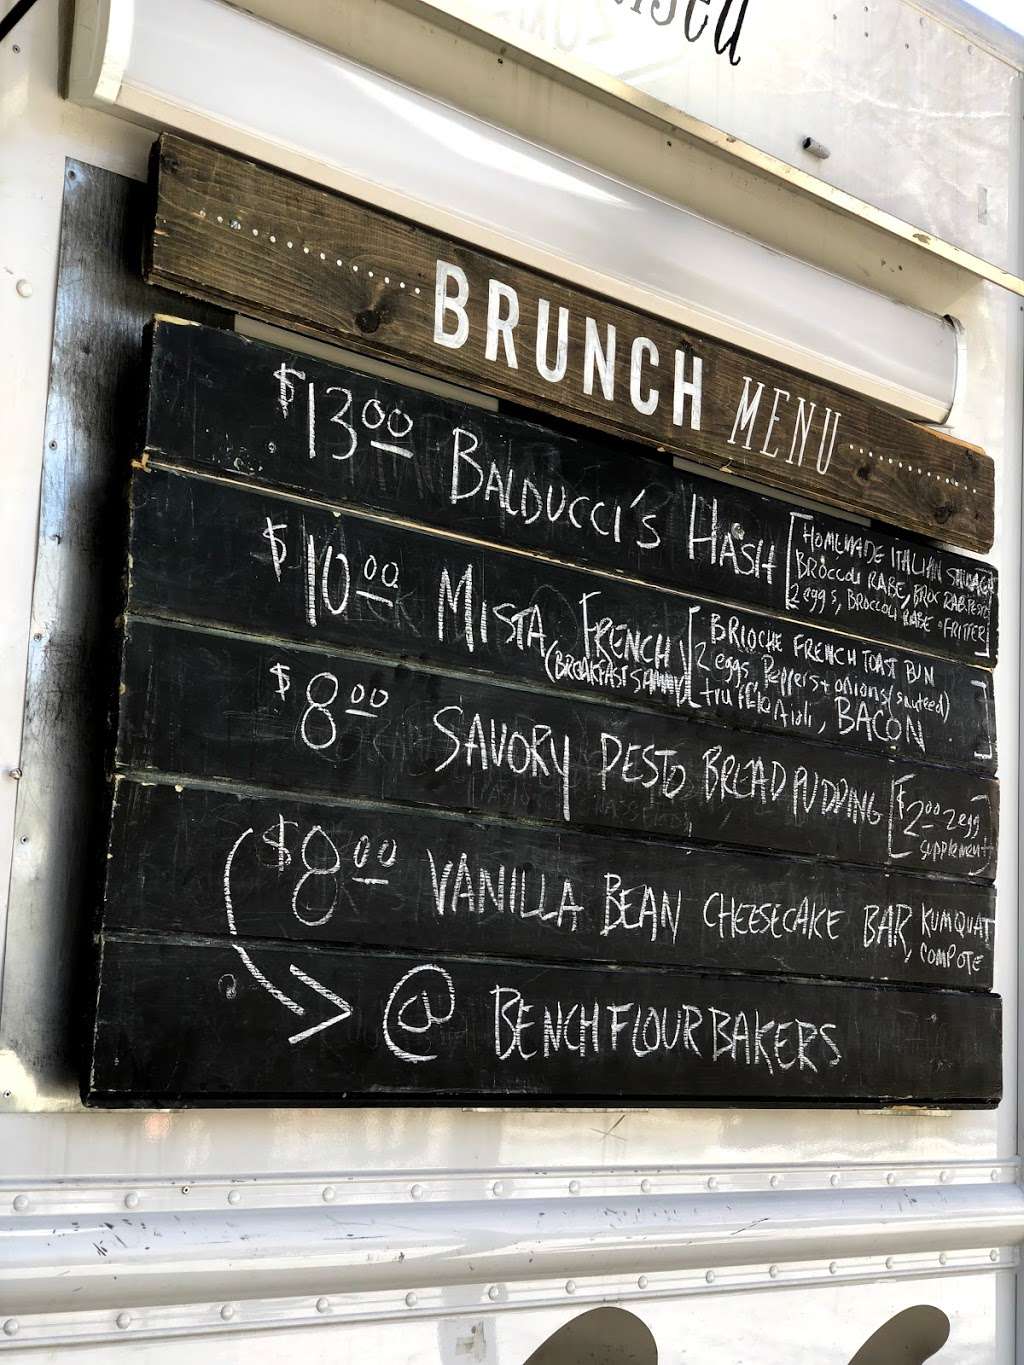 BRUNCH MENU
$13.00 BALDUCCI'S HASH [HOMEMADE ITALIAN SAUSAGE
BROCCOLI RABE, BROC RAB PESTO
2 eggs, BROCCOLI RABE FRITTER]
$10.00 MISTA FRENCH [BRIOCHE FRENCH TOAST BUN
(BREAKFAST SAMMY) 2 eggs, Peppers + onions (sauteed)
truffle Aioli, BACON]
$8.00 SAVORY PESTO BREAD PUDDING [$2.00 2 egg
supplement]
$8.00 VANILLA BEAN CHEESECAKE BAR, KUMQUAT
COMPOTE
@ BENCHFLOURBAKERS